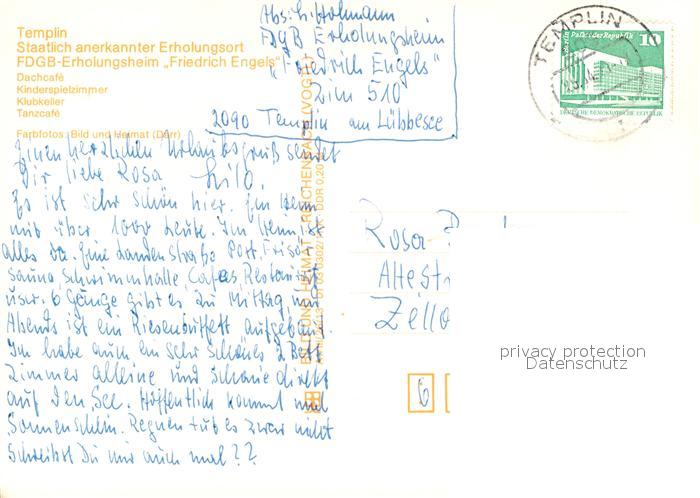 Templin
Staatlich anerkannter Erholungsort
FDGB-Erholungsheim „Friedrich Engels“
Dachcafé
Kinderspielzimmer
Klubkeller
Tanzcafé
Farbfotos: Bild und Heimat (Darr)
Abs: L. Hohmann
FDGB Erholungsheim
„Friedrich Engels“
Zim 510
2090 Templin am Lübbesee
TEMPLIN
Berlin, Palast der Republik
10
DEUTSCHE DEMOKRATISCHE REPUBLIK
Einen herzlichen Urlaubsgruß sendet
Dir liebe Rosa Lilo.
Es ist sehr schön hier. Ein Heim
mit über 1000 Leute. Im Heim ist
alles da. Eine Ladenstraße Post, Frisör
Sauna, Schwimmhalle, Cafes, Restaurant
usw. 6 Gänge gibt es zu Mittag und
Abends ist ein Riesenbüffett aufgebaut.
Im habe auch ein sehr schönes 2 Bett
Zimmer alleine und schaue direkt
auf den See. Hoffentlich kommt mal
Sonnenschein. Regnen tut es zwar nicht
Schreibst Du mir auch mal??
BILD UND HEIMAT REICHENBACH (VOGTL)
Rosa
Altestr
Zello
6
privacy protection
Datenschutz